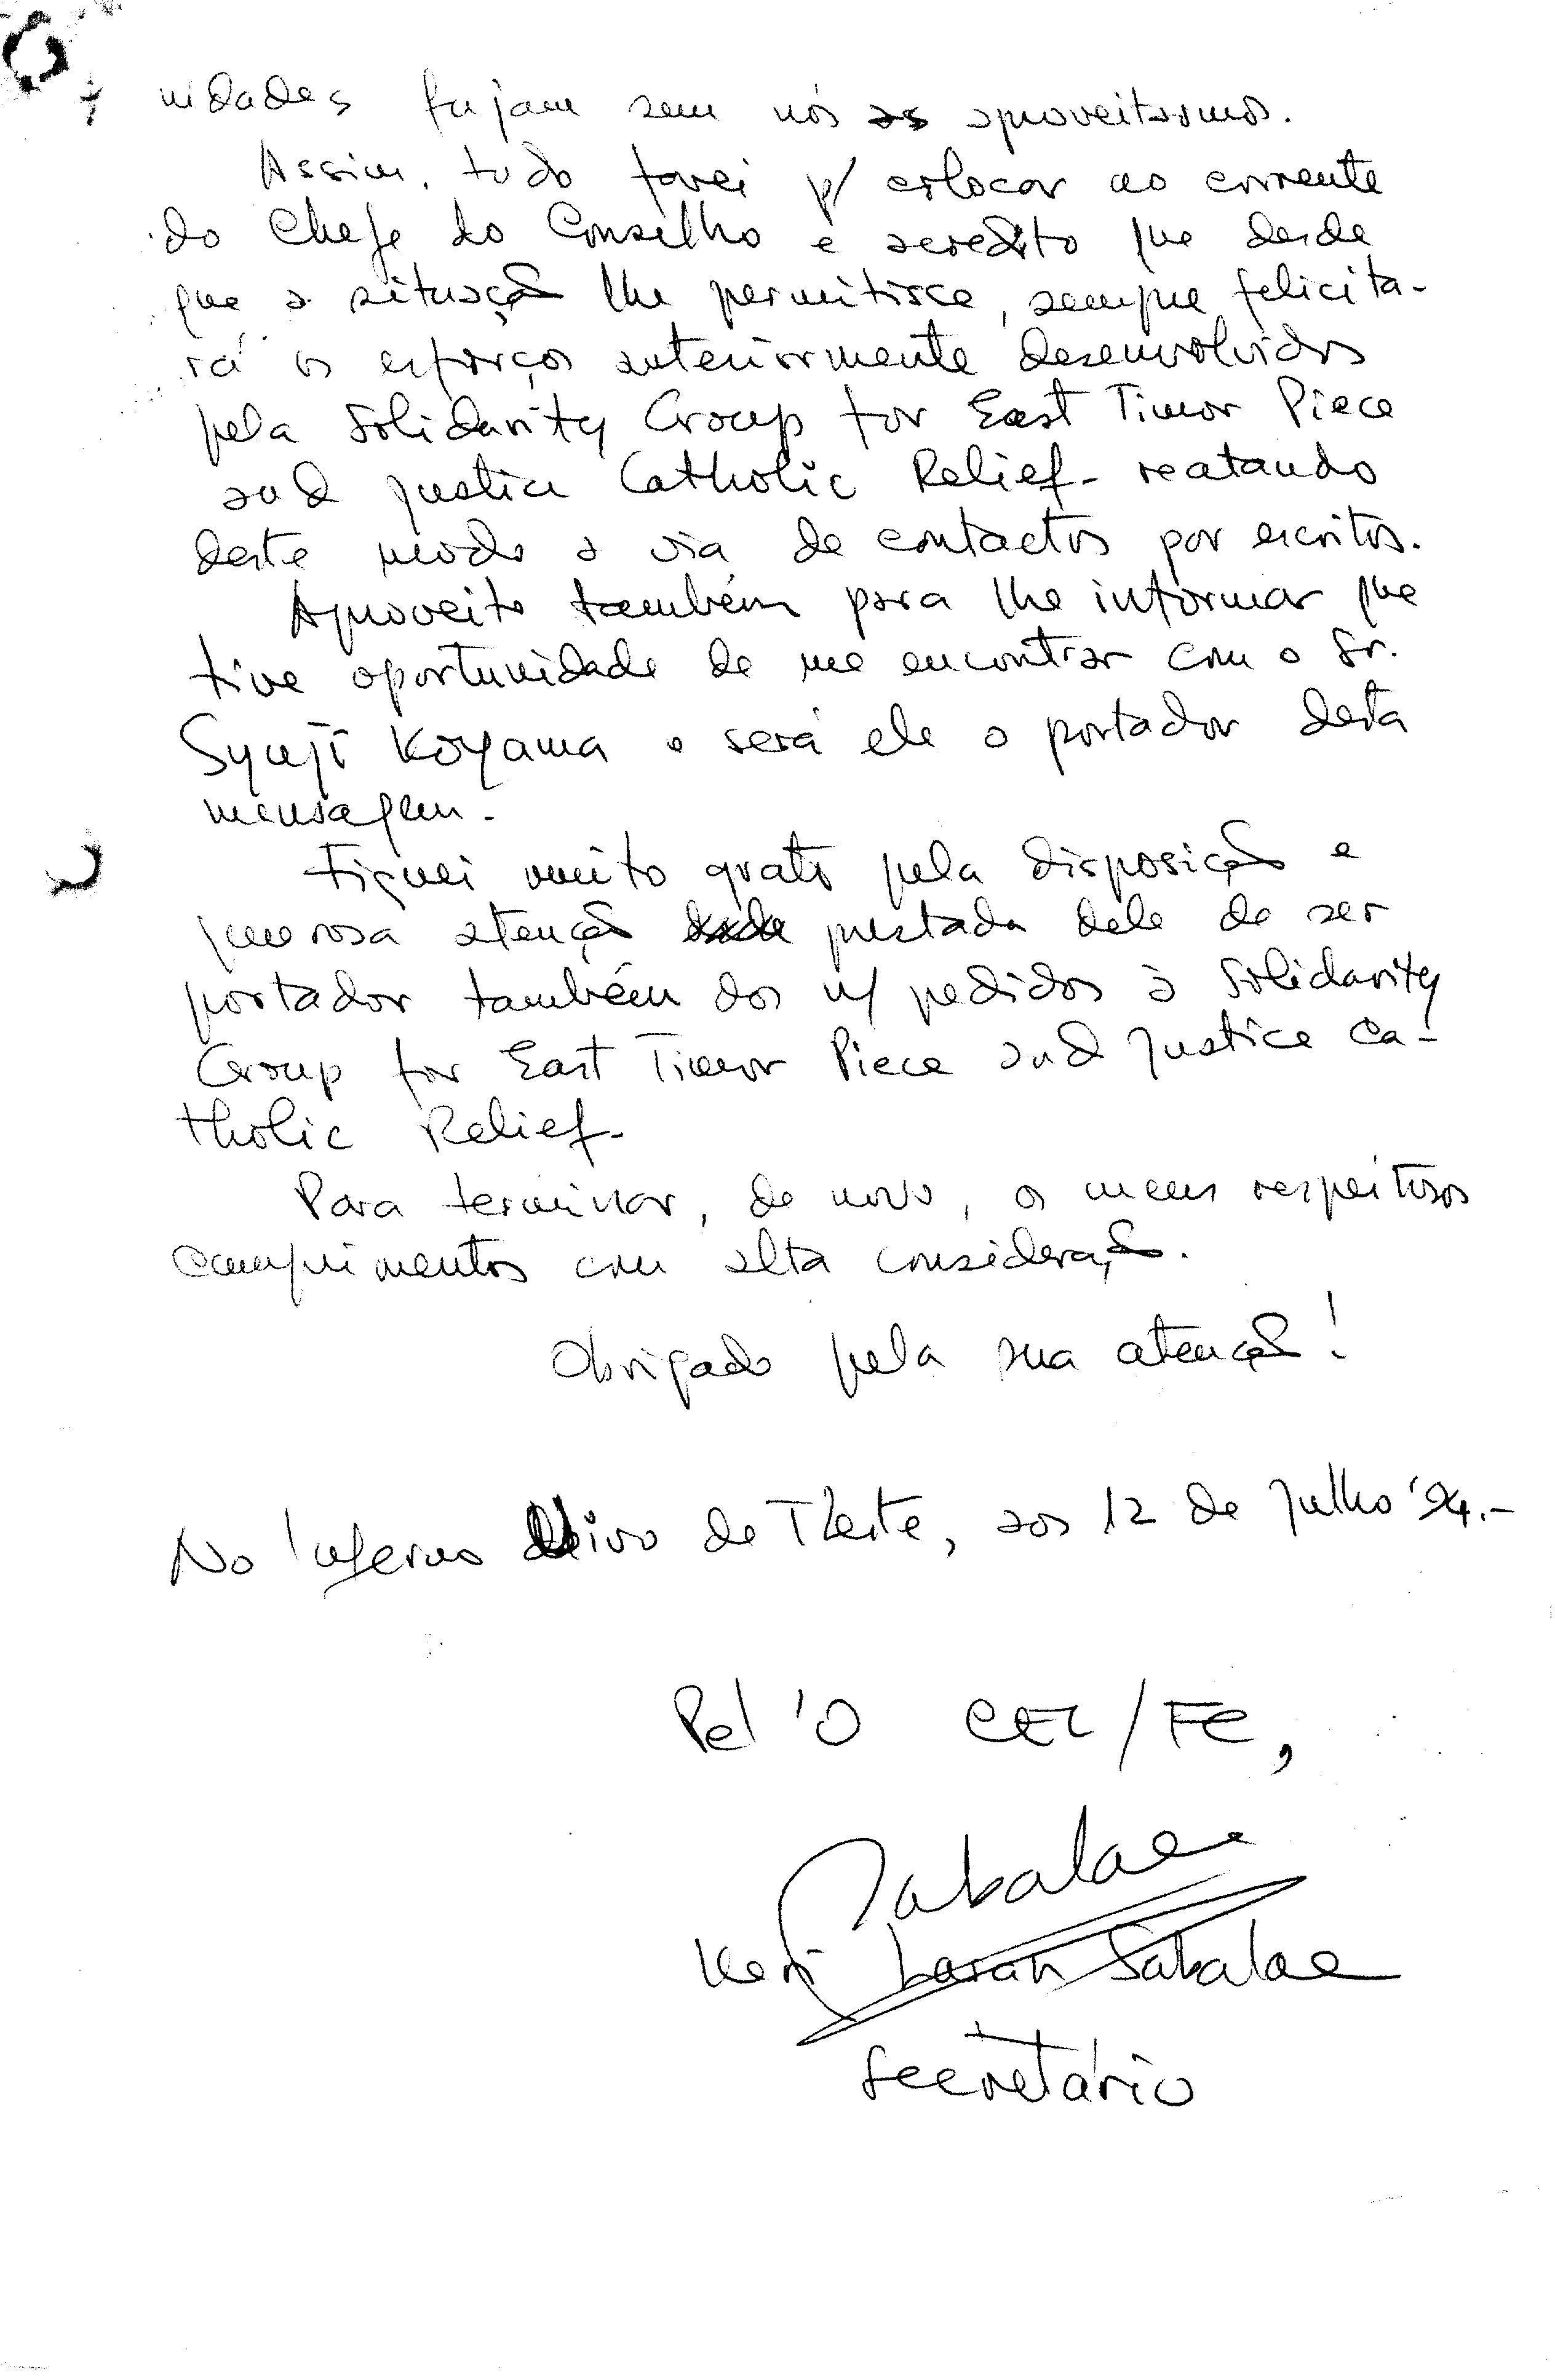 nidades fujam sem nós as aproveitarmos.
Assim, tudo farei p/ colocar ao corrente
do Chefe do Conselho e acredito que desde
que a situação lhe permitisse, sempre felicita-
rá os esforços anteriormente desenvolvidos
pela Solidarity Group for East Timor Piece
and Justice Catholic Relief - reatando
deste modo a via de contactos por escritos.
Aproveito também para lhe informar que
tive oportunidade de me encontrar com o Sr.
Syuji Koyama e será ele o portador desta
mensagem.
Fiquei muito grato pela disposição e
generosa atenção prestada dele de ser
portador também dos n/ pedidos à Solidarity
Group for East Timor Piece and Justice Ca-
tholic Relief.
Para terminar, de novo, os meus respeitosos
cumprimentos com alta consideração.
Obrigado pela sua atenção!
No Inferno Vivo de T Leste, aos 12 de Julho '94.-
Pel 'O CEL/FC,
Sabalae
Keri Laran Sabalae
Secretário